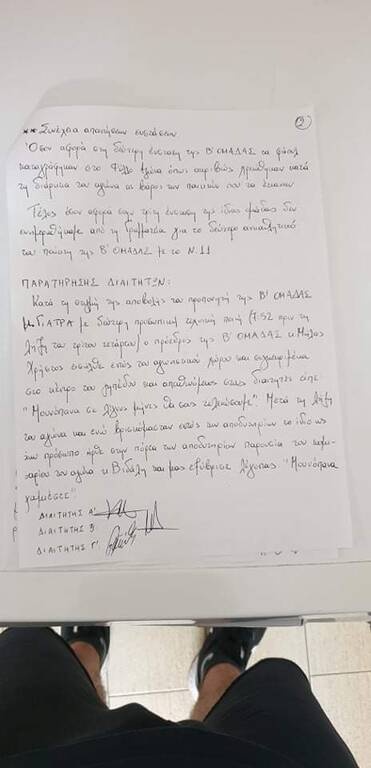 ②
** Συνέχεια απαντήσεων ενστάσεων
Όσον αφορά στη δεύτερη ένσταση της Β' ΟΜΑΔΑΣ τα φάουλ
καταγράφηκαν στο Φύλλο Αγώνα όπως ακριβώς χρεώθηκαν κατά
τη διάρκεια του αγώνα εις βάρος των παικτών που τα έκαναν
Τέλος όσον αφορά στην τρίτη ένσταση της ίδιας ομάδας δεν
ενημερωθήκαμε από τη Γραμματεία για το δεύτερο αντιαθλητικό
του παίκτη της Β' ΟΜΑΔΑΣ με το Ν. 11
ΠΑΡΑΤΗΡΗΣΗΣ ΔΙΑΙΤΗΤΩΝ:
Κατά τη στιγμή της αποβολής του προπονητή της Β' ΟΜΑΔΑΣ
κ. ΓΙΑΤΡΑ με δεύτερη προσωπική τεχνική ποινή (7:52 πριν τη
λήξη του τρίτου τετάρτου) ο πρόεδρος της Β' ΟΜΑΔΑΣ κ.
Χρήστος εισήλθε εντός του αγωνιστικού χώρου και συγκεκριμένα
στο κέντρο του γηπέδου και απευθυνόμενος στους διαιτητές είπε
"Μουνόπανα σε λίγους μήνες θα σας τελειώσουμε". Μετά τη λήξη
του αγώνα και ενώ βρισκόμασταν εντός των αποδυτηρίων το ίδιο ως
άνω πρόσωπο ήρθε στην πόρτα των αποδυτηρίων παρουσία του κομι-
σαρίου του αγώνα κ. και μας εξύβρισε λέγοντας "Μουνόπανα
χαμένε"
ΔΙΑΙΤΗΤΗΣ Α'
ΔΙΑΙΤΗΤΗΣ Β'
ΔΙΑΙΤΗΤΗΣ Γ'